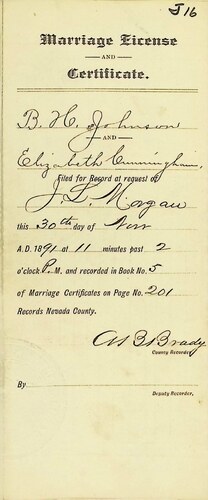 J 16
Marriage License
AND
Certificate.
B. H. Johnson
AND
Elizabeth Cunningham,
Filed for Record at request of
J. L. Morgan
this 30th day of Nov
A.D. 1891 at 11 minutes past 2
o'clock P. M. and recorded in Book No. 5
of Marriage Certificates on Page No. 201
Records Nevada County.
Brady
County Recorder
By
Deputy Recorder,